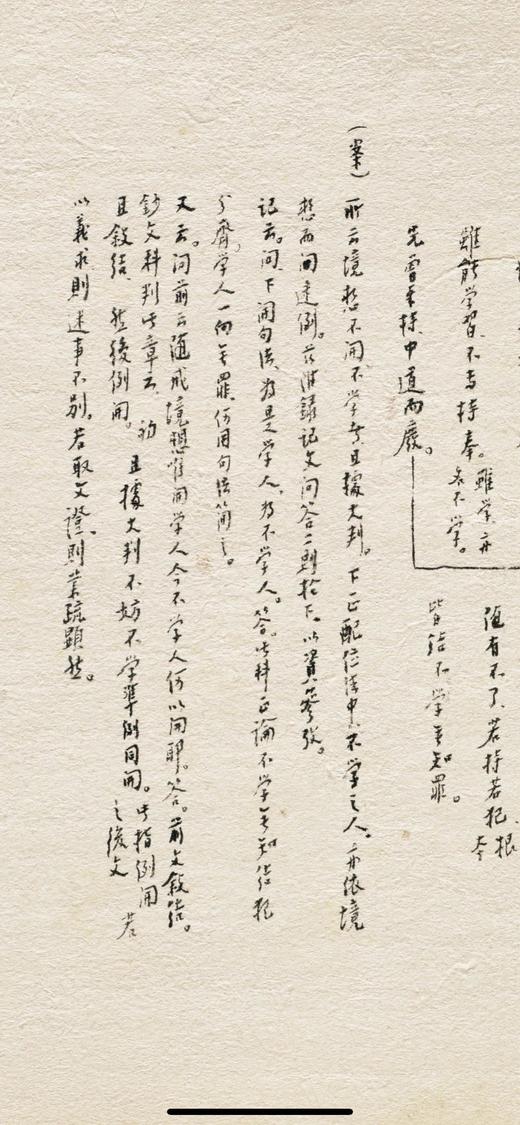 雖有不了、若持若犯、根本
雖能学習、不专持奉。雖学亦名不学。
皆結不学无知罪。
先曾秉持、中道而廢。
（案）所云境想不開不学者、且據大判。下正配位法中、不学之人。亦依境
想而開遣例。兹准録記文問答二則於下、以資參攷。
記云。問、下開句法、为是学人、为不学人。答。此科正論不学无知结犯
分齊、学人一向无罪、何用句法簡之。
又云。問前云通戒境想惟開学人今不学人何以開耶。答。前文敘结。
鈔文科判此章云、初且敘结、然後例開。且據大判不妨不学準例同開。此指例開之後文若
以義求則述事不別。若取文證、則業疏顯然。